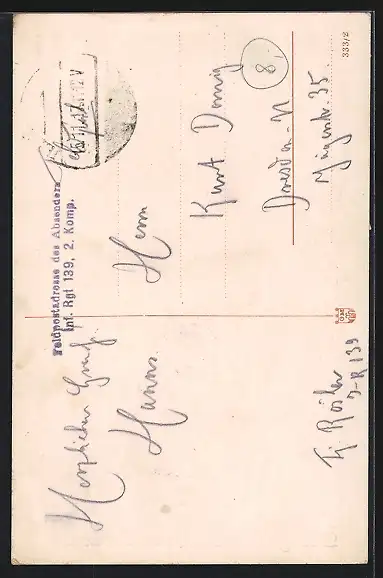 Feldpost
Feldpostadresse des Absenders
Inf. Rgt 139, 2. Komp.
Herzlichen Gruß
Hanns.
Herrn
Kurt
Dresden-N
Jägerstr. 35
8.
J-R 139
333/2